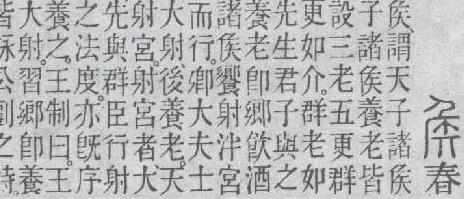 矦春
侯謂天子諸侯
子諸侯養老皆
設三老五更群
更如介群老如
先生君子與之
養老卽鄉飮酒
諸侯饗射泮宮
而行卿大夫士
大射後養老天
射宮射宮者大
先與群臣行射
之法度亦旣序
養之王制曰王
大射習鄉卽養
皆公劉之時